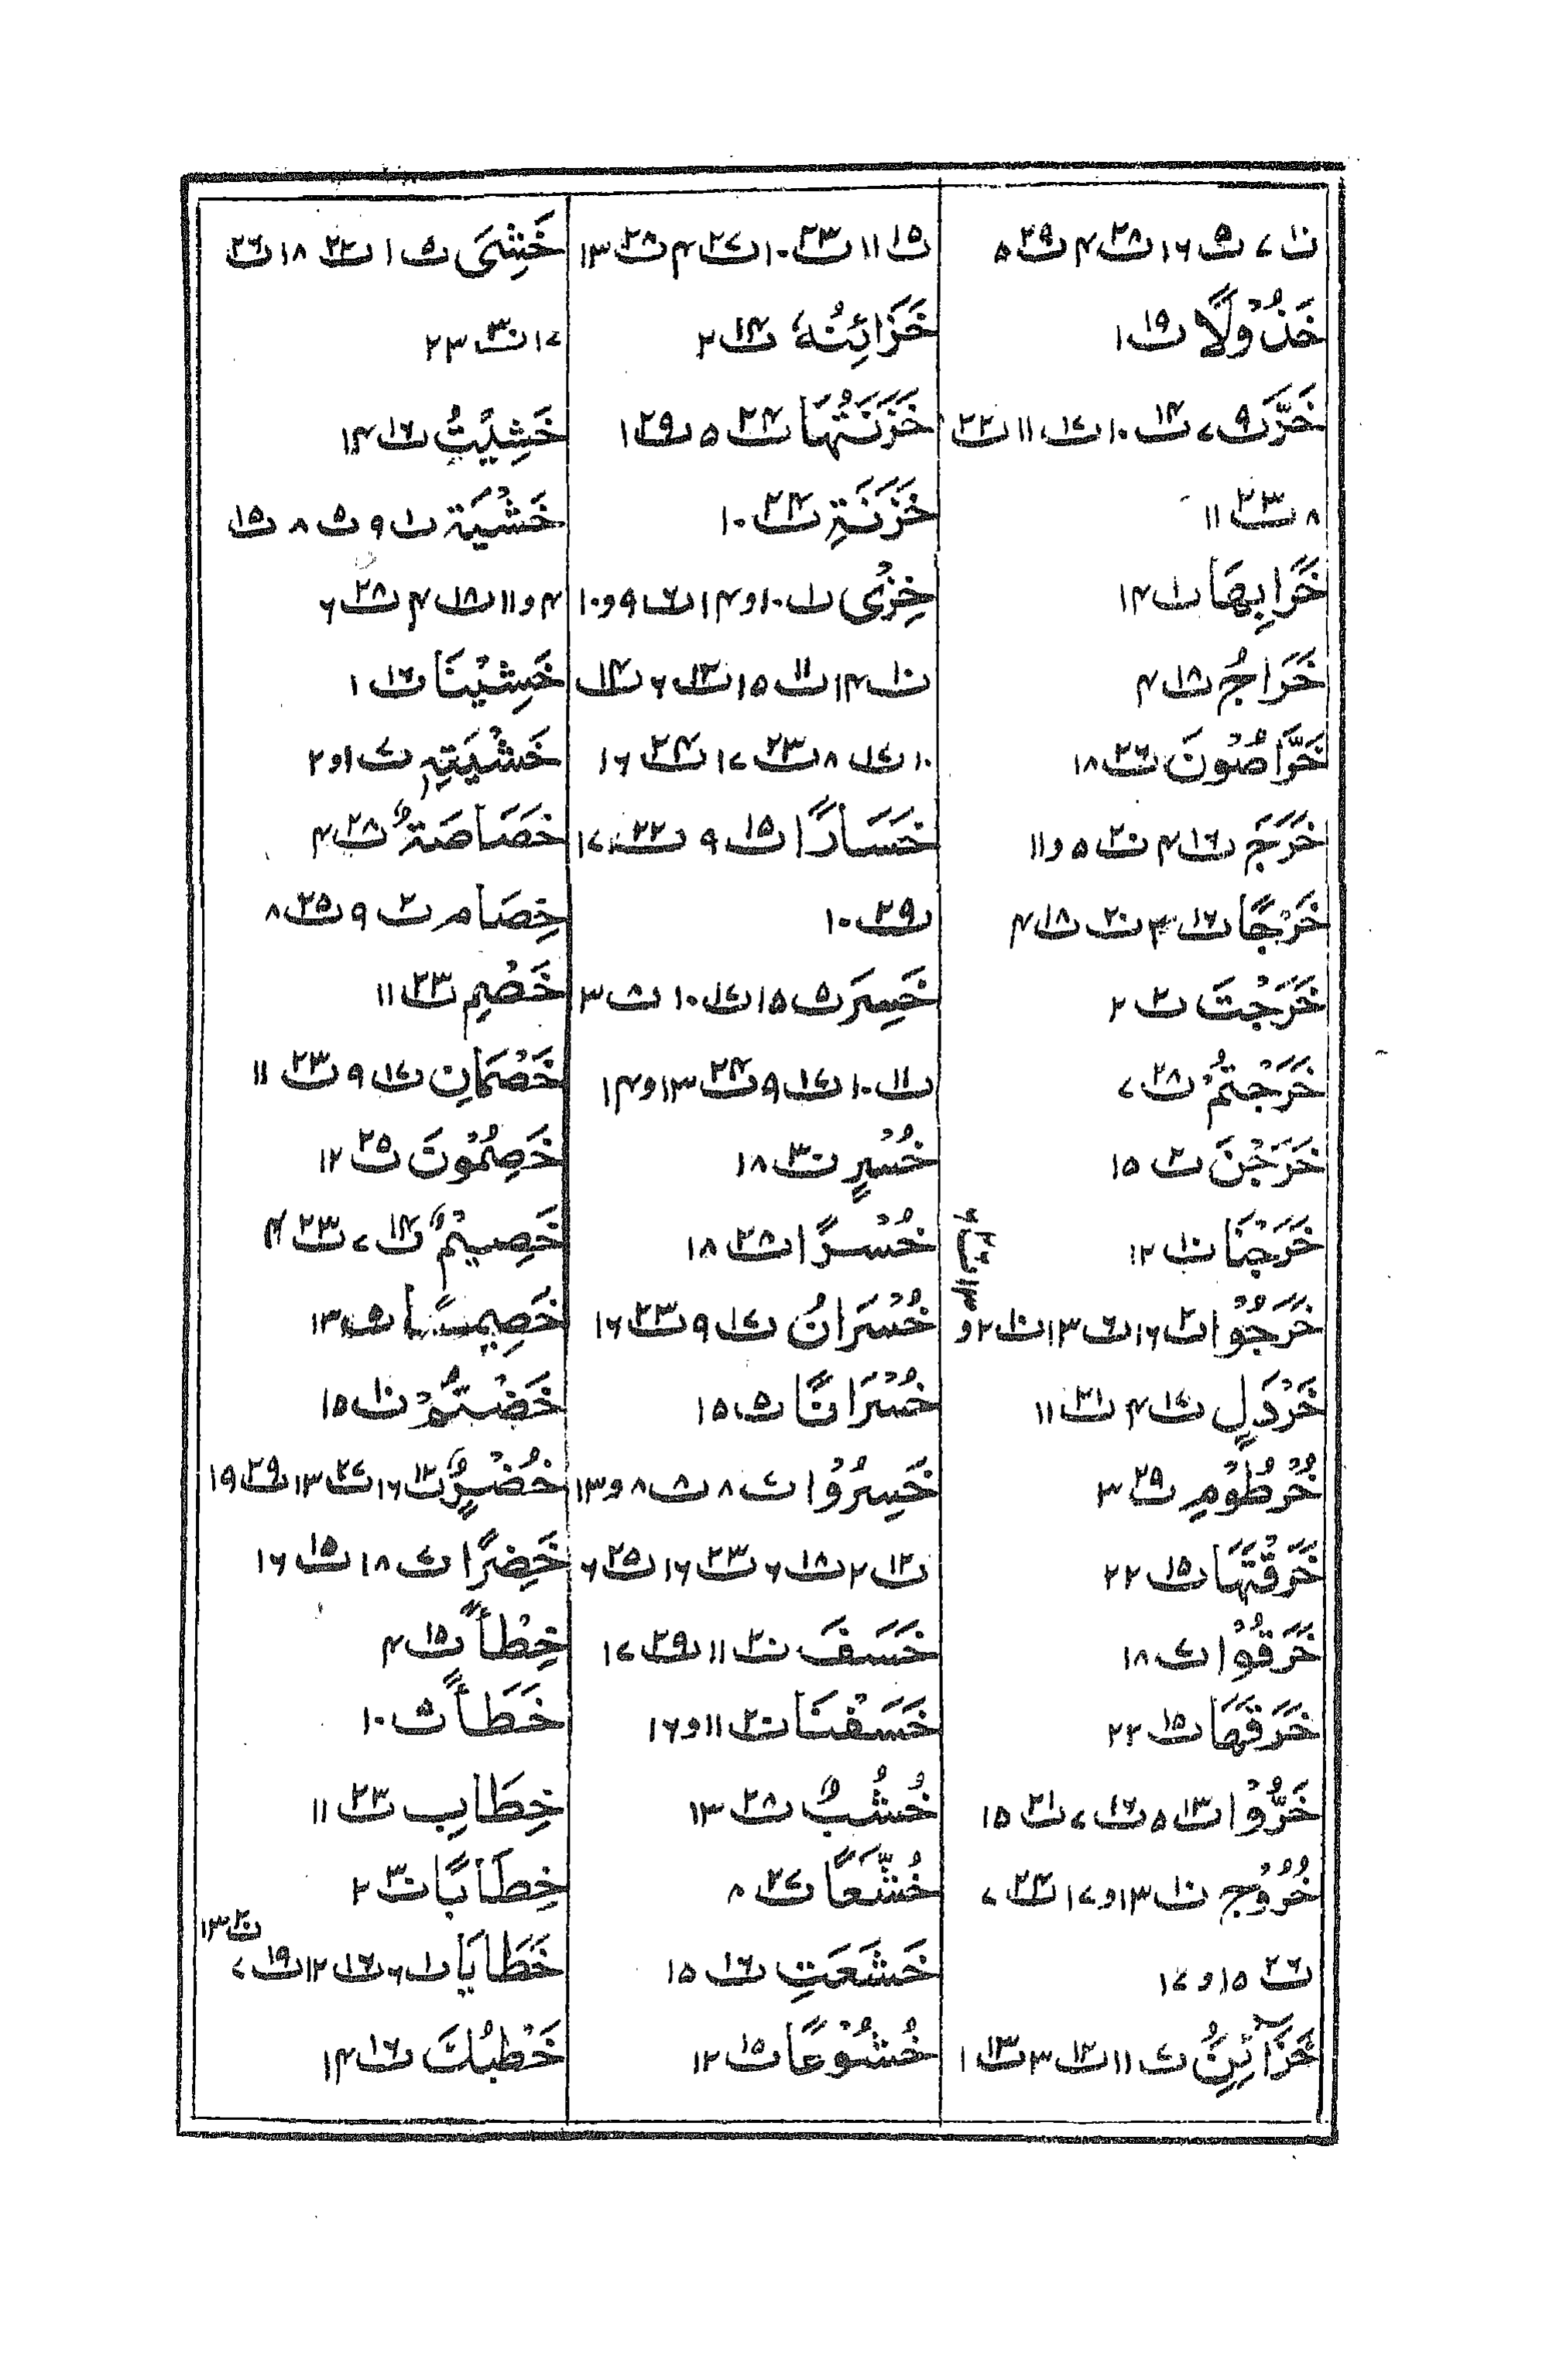 ت۱۰ ۷ ت۵ ۱۶ ت۲۸ ۴ ت۲۹ ۵
خَذُوْلًا ت۱۹ ۱
خَرَّ ت۹ ۷ ت۱۴ ۱۰ ت۱۷ ۱۱ ت۲۲
۸ ت۲۳ ۱۱
خَرَابِهَا ت۱ ۱۴
خَرَاجُ ت۱۸ ۴
خَرَّاصُوْنَ ت۲۶ ۱۸
خَرَجَ ت۱۶ ۴ ت۲۰ ۵ و ۱۱
خَرْجًا ت۱۶ ۲ ت۱۸ ۴
خَرَجْتَ ت۲ ۲
خَرَجْتُمْ ت۲۸ ۷
خَرَجْنَ ت۲ ۱۵
خَرَجْنَا ت۱۰ ۱۲
خَرَجُوْا ت۲ ۱۶ ت۶ ۱۳ ت۱۰ ۲ و
خَرْدَلٍ ت۱۷ ۴ ت۲۱ ۱۱
خُرْطُوْمِ ت۲۹ ۳
خَرَقْتَهَا ت۱۵ ۲۲
خَرَقُوْا ت۷ ۱۸
خَرَقَهَا ت۱۵ ۲۲
خَرُّوْا ت۱۳ ۵ ت۱۶ ۷ ت۲۱ ۱۵
خُرُوْجِ ت۱۰ ۱۳ و ۱۷ ت۲۴ ۷
ت۲۶ ۱۵ و ۱۷
خَزَآئِنُ ت۷ ۱۱ ت۱۲ ۳ ت۱۳ ۱
ت۱۵ ۱۱ ت۲۳ ۱۰ ت۲۷ ۴ ت۲۸ ۱۳
خَزَائِنُهٗ ت۱۴ ۲
خَزَنَتُهَا ت۲۴ ۵ ت۲۹ ۱
خَزَنَۃِ ت۲۴ ۱۰
خِزْی ت۱ ۱۰ و ۱۴ ت۶ ۹ و ۱۰
ت۱۰ ۱۴ ت۱۱ ۱۵ ت۱۲ ۶ ت۱۴
۱۰ ت۱۷ ۸ ت۲۳ ۱۷ ت۲۴ ۱۶
خَسَارًا ت۱۵ ۹ ت۲۲ ۱۷
ت۲۹ ۱۰
خَسِرَ ت۵ ۱۵ ت۷ ۱۰ ت۸ ۳
ت۱۱ ۱۰ ت۱۷ ۹ ت۲۴ ۱۳ و ۱۴
خُسْرٍ ت۳۰ ۱۸
خُسْرًا ت۲۸ ۱۸
خُسْرَانُ ت۱۷ ۹ ت۲۳ ۱۶
خُسْرَانًا ت۵ ۱۵
خَسِرُوْا ت۷ ۸ ت۸ ۸ و ۱۳
ت۱۲ ۲ ت۱۸ ۶ ت۲۳ ۱۶ ت۲۵ ۶
خَسَفَ ت۲۰ ۱۱ ت۲۹ ۱۷
خَسَفْنَا ت۲۰ ۱۱ و ۱۶
خُشُبٌ ت۲۸ ۱۳
خُشَّعًا ت۲۷ ۸
خَشَعَتِ ت۱۶ ۱۵
خُشُوْعًا ت۱۵ ۱۲
خَشِیَ ت۵ ۱ ت۲۲ ۱۸ ت۲۶
۱۷ ت۳۰ ۲۳
خَشِیْتُ ت۱۶ ۱۴
خَشْیَۃِ ت۱ ۹ ت۵ ۸ ت۱۵
۴ و ۱۱ ت۱۸ ۴ ت۲۸ ۶
خَشِیْنَا ت۱۶ ۱
خَشْیَتِہٖ ت۷ ۱ و ۲
خَصَاصَۃٌ ت۲۸ ۴
خِصَامِ ت۲ ۹ ت۲۵ ۸
خَصْمِ ت۲۳ ۱۱
خَصْمَانِ ت۱۷ ۹ ت۲۳ ۱۱
خَصِمُوْنَ ت۲۵ ۱۲
خَصِیْمٌ ت۱۴ ۷ ت۲۳ ۴
خَصِیْمًا ت۵ ۱۳
خَضْتُمْ ت۱۰ ۱۵
خُضْرٍ ت۱۲ ۱۶ ت۲۷ ۱۳ ت۲۹ ۱۹
خَضِرًا ت۷ ۱۸ ت۱۵ ۱۶
خِطْأً ت۱۵ ۴
خَطَأً ت۵ ۱۰
خِطَابِ ت۲۳ ۱۱
خِطَابًا ت۳۰ ۲
خَطَایَا ت۱ ۶ ت۱۶ ۱۲ ت۱۹ ۷
ت۲۰ ۱۳
خَطْبُكَ ت۱۶ ۱۴